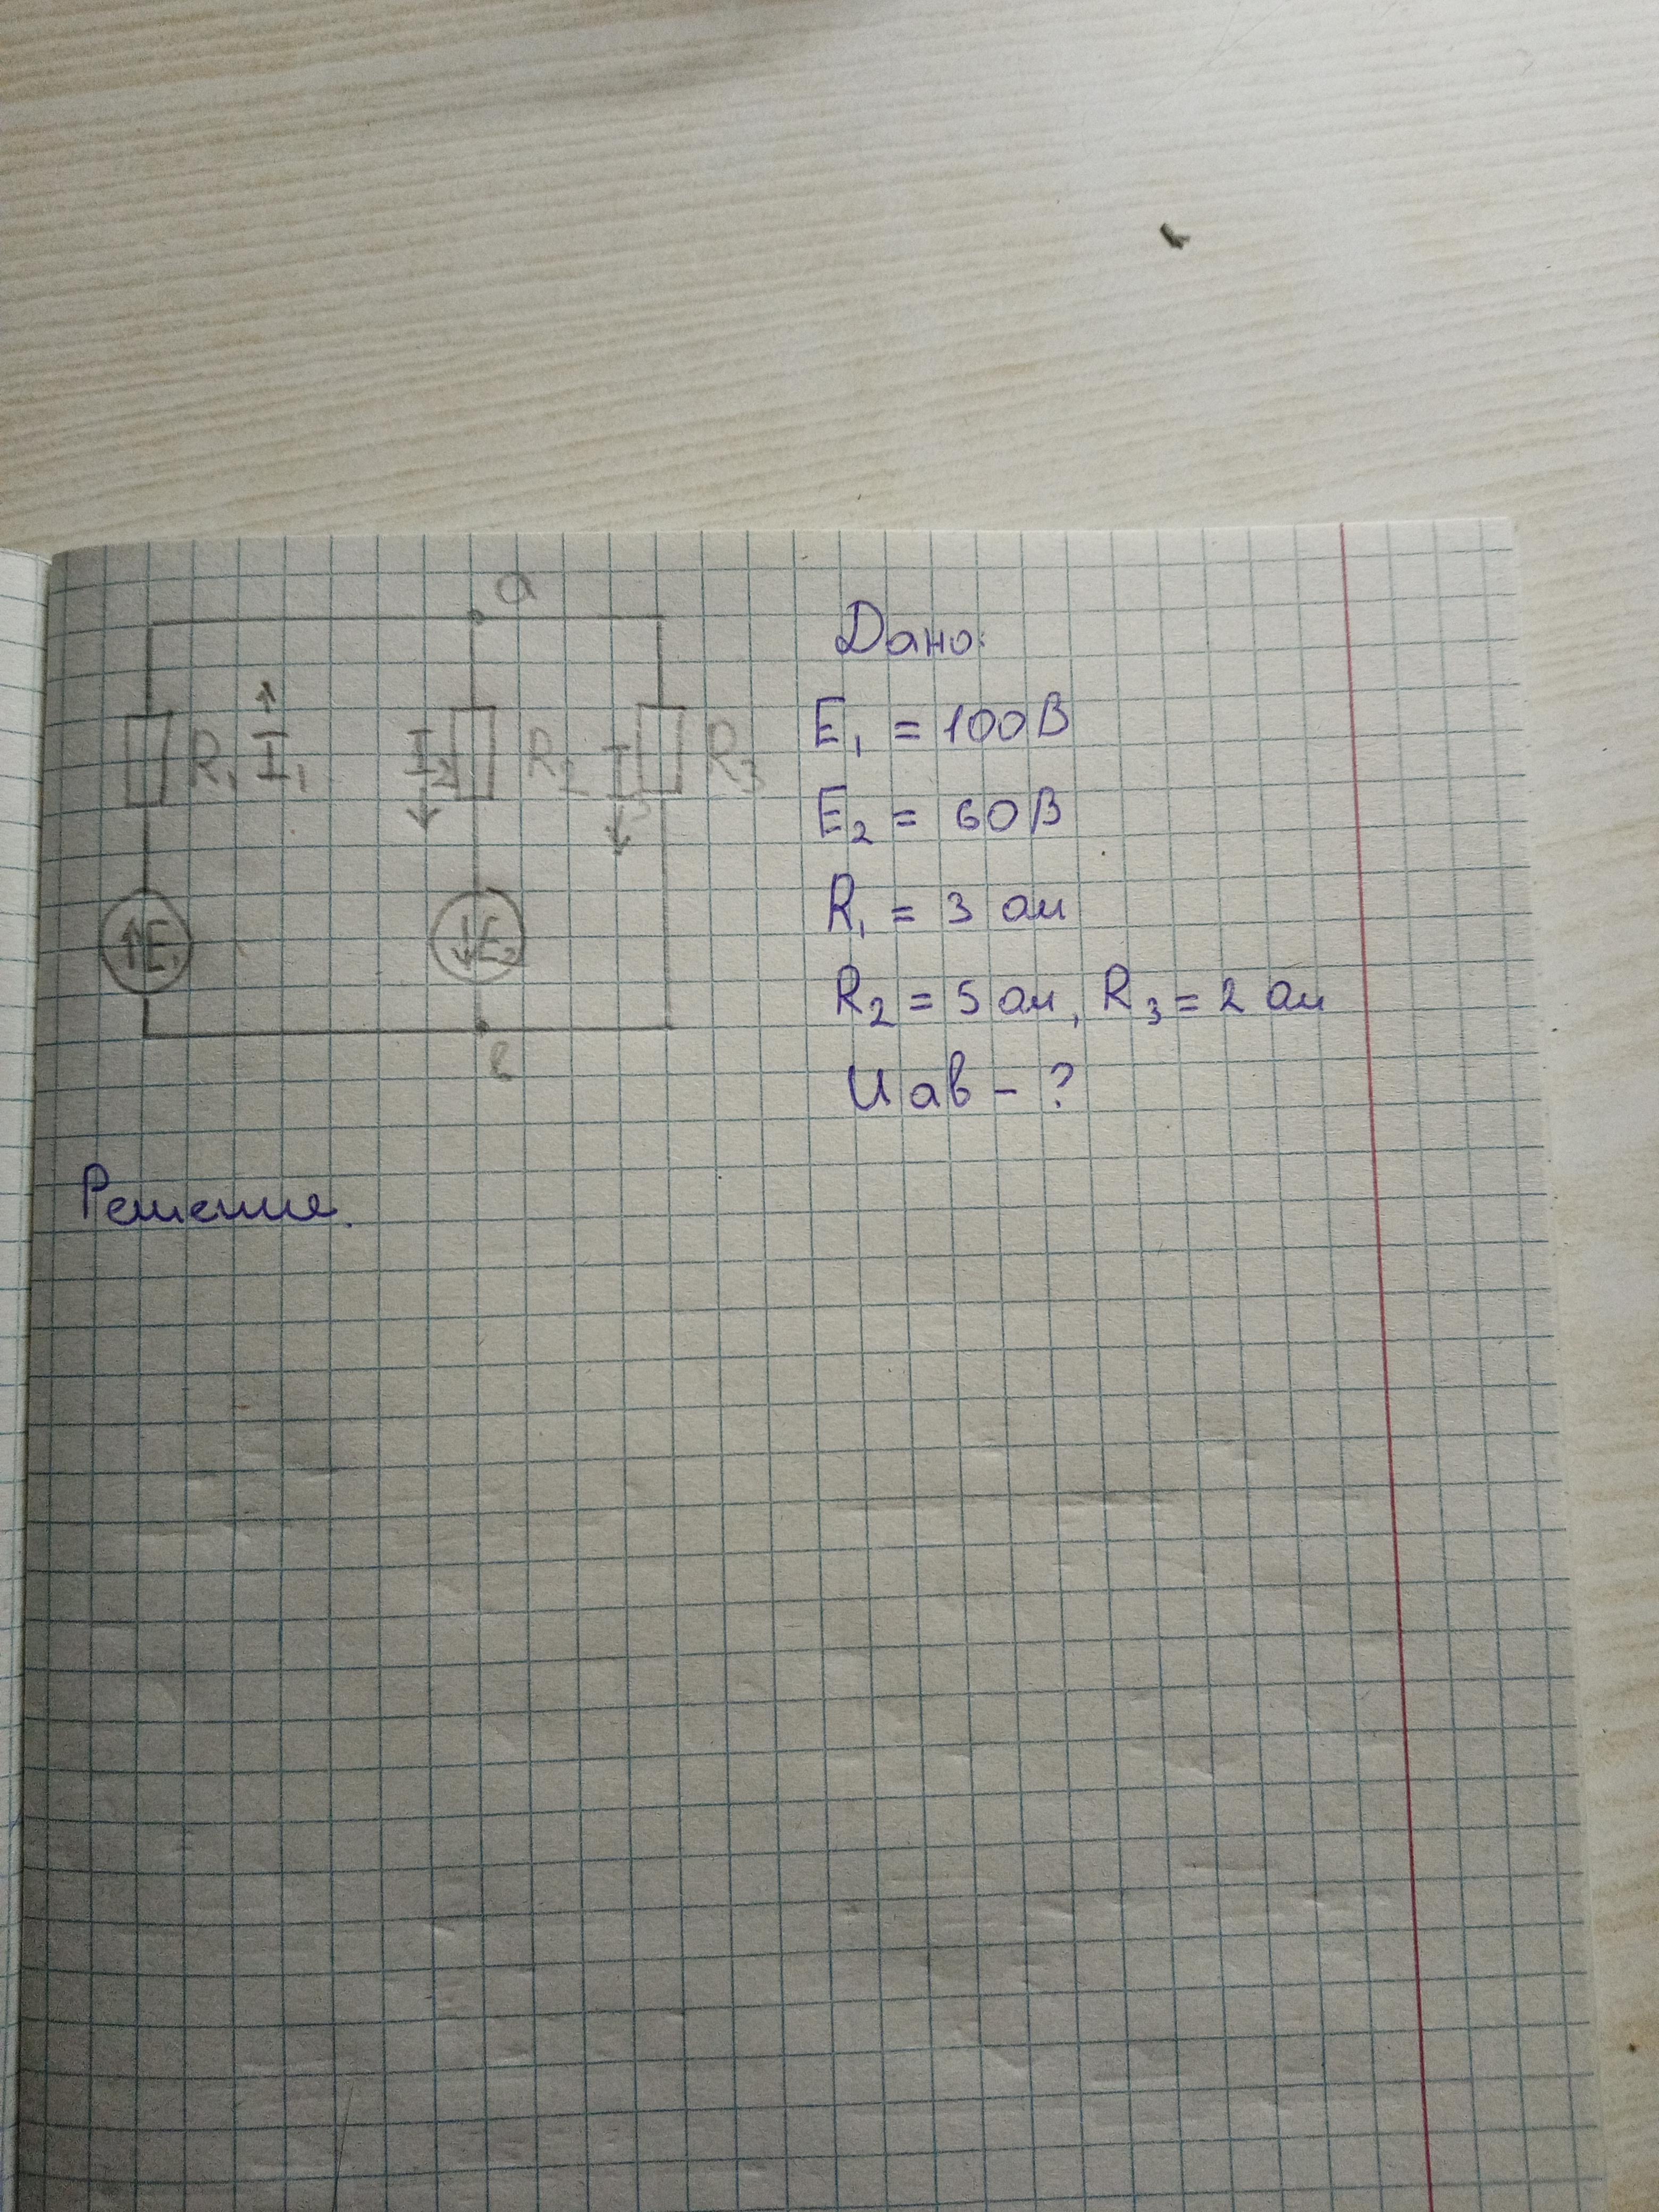 a
R₁ I₁ I₂ R₂ I₃ R₃
E₁ E₂
в
Дано:
E₁ = 100В
E₂ = 60В
R₁ = 3 ом
R₂ = 5 ом, R₃ = 2 ом
Uав - ?
Решение.